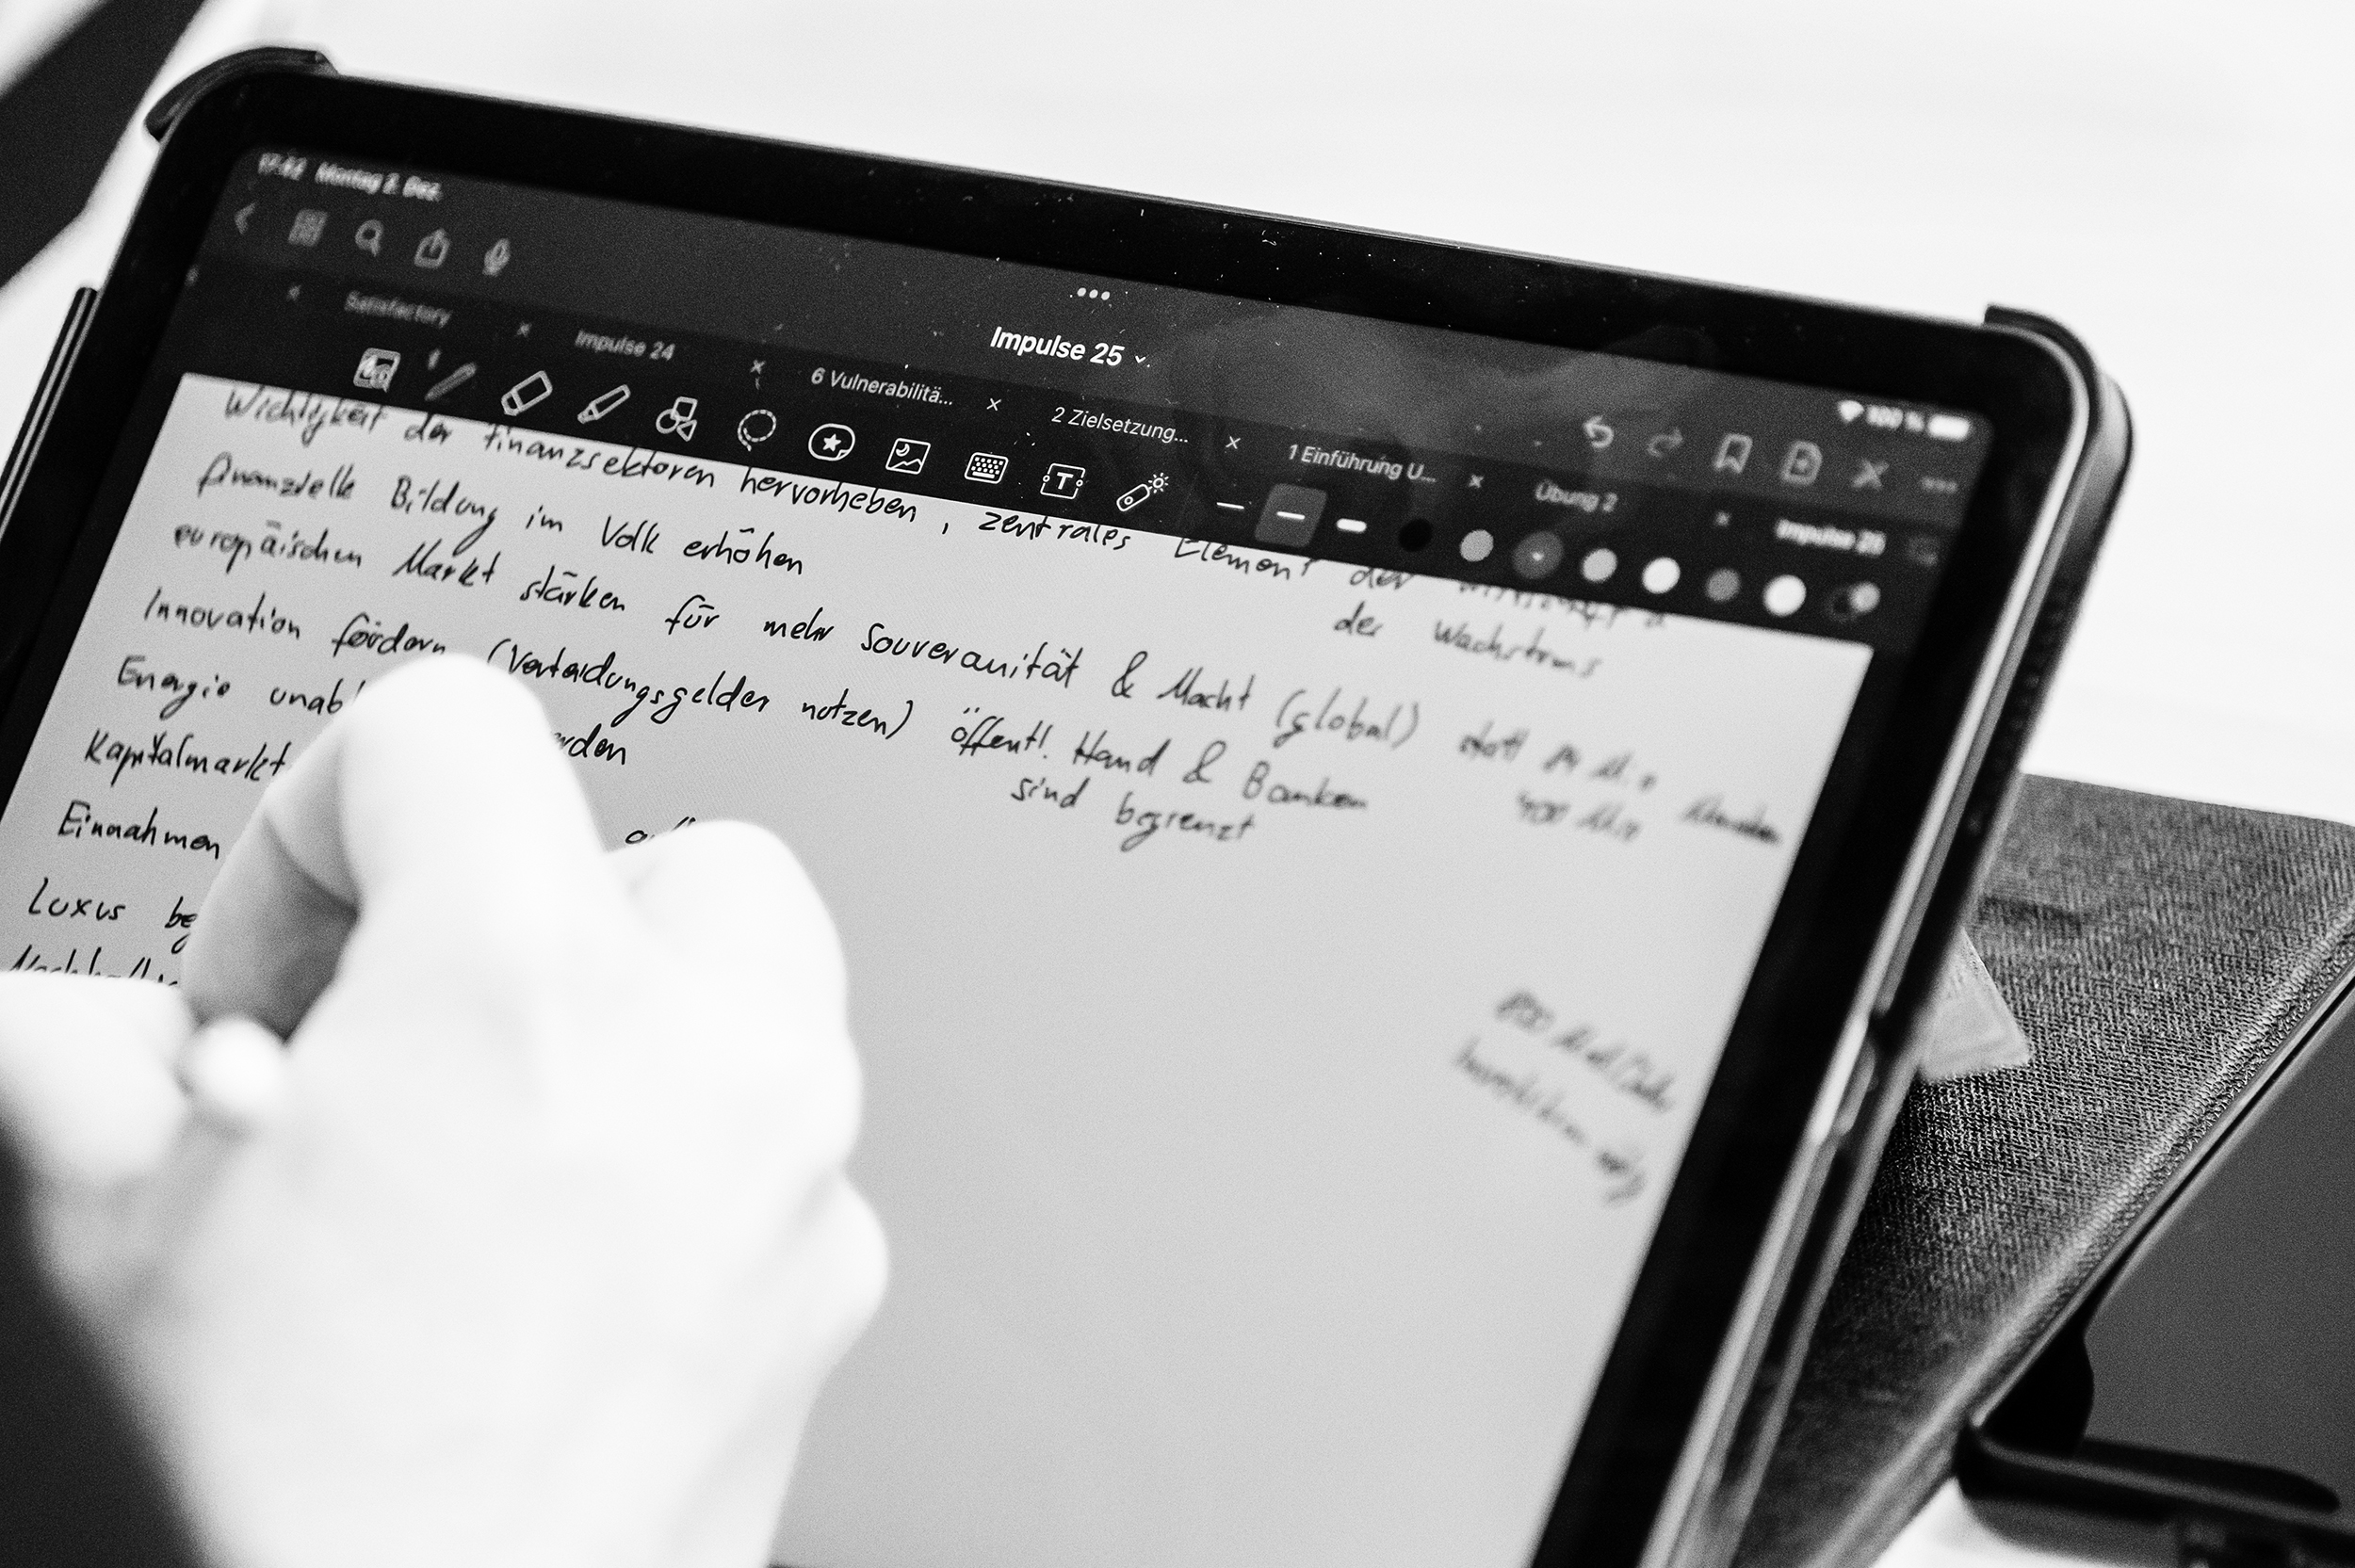 Montag 2. Dez.
100 %
Impulse 25
Satisfactory
Impulse 24
6 Vulnerabilitä...
2 Zielsetzung...
1 Einführung U...
Übung 2
Impulse 25
Wichtigkeit der Finanzsektoren hervorheben, zentrales Element der
der Wachstums
finanzielle Bildung im Volk erhöhen
europäischen Markt stärken für mehr Souveranität & Macht (global) statt
Innovation fördern (Verteidungsgelder nutzen) öffentl. Hand & Banken
sind begrenzt
Energie unab
rden
Kapitalmarkt
Einnahmen
Luxus be